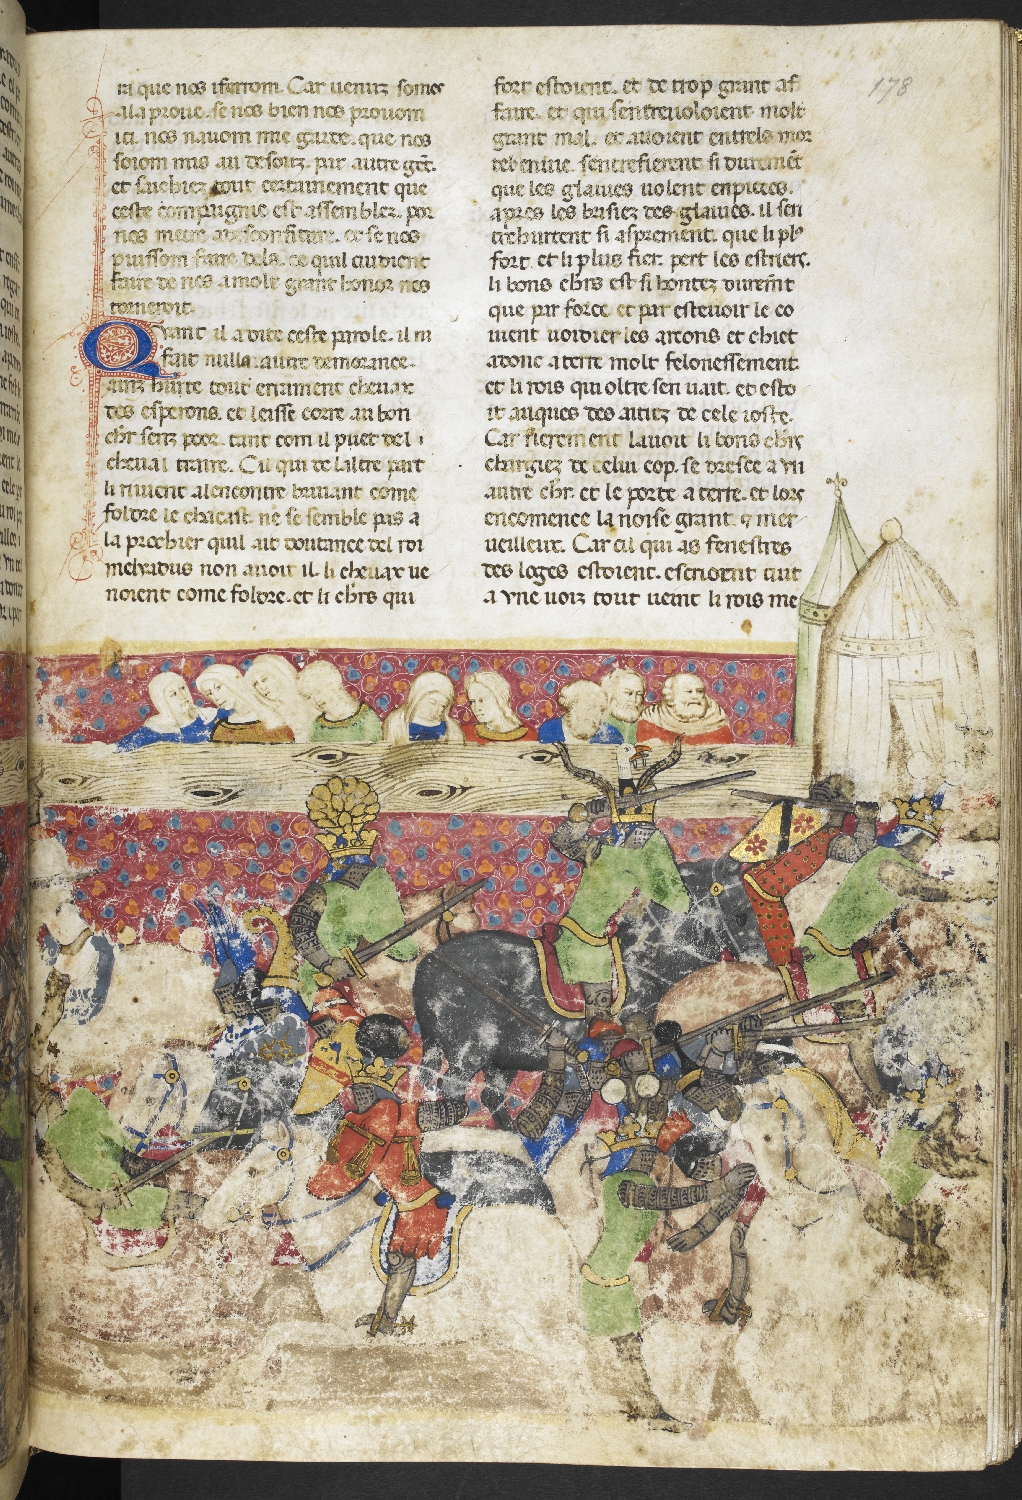 ri que nos iferrom. Car uenuz somes
ala proue. se nos bien nos prouom
ici. nos nauom mie garde. que nos
soiom mis au desouz. par autre gēt.
et sachiez tout certainement que
ceste compaignie est assemblez. por
nos metre a desconfiture. et se nos
puissom faire dels. ce quil cuident
faire de nos a molt grant honor nos
torneroit.
Quant il a dite ceste parole. il ni
fait nulle autre demorance.
ainz hurte tout errament cheuax
des esperons. et leisse corre au bon
chr̄ senz poor. tant com il puet del
cheual traire. Cil qui de laltre part
li uiuent alencontre bruiant come
foldre le chacast. ne se semble pas a
la prochier quil ait doutance del roi
meliadus non auoit il. li cheuax ue
noient come foldre. et li chr̄s qui
fort estoient. et de trop grant af
faire. et qui sentreuoloient molt
grant mal. et auoient entrels mor
tel enuie. sentrefierent si duremēt
que les glaiues uolent en pieces.
apres les brisiez des glaiues. il sen
trehurtent si asprement. que li pl9
fort. et li plus fier. pert les estriers.
li bons chr̄s est si hontez duremt̄
que par force et par esteuoir le co
uient uoidier les arcons et chiet
adonc a terre molt felonessement
et li rois qui oltre sen uait. et esto
it auques des autez de cele ioste.
Car fierement lauoit li bons chr̄s
chargiez de celui cop. se dresce a vn
autre chr̄. et le porte a terre. et lors
encomence la noise grant. et mer
ueilleux. Car cil qui as fenestres
des loges estoient. escriorent tuit
a vne uoiz tout ueint li rois me
178